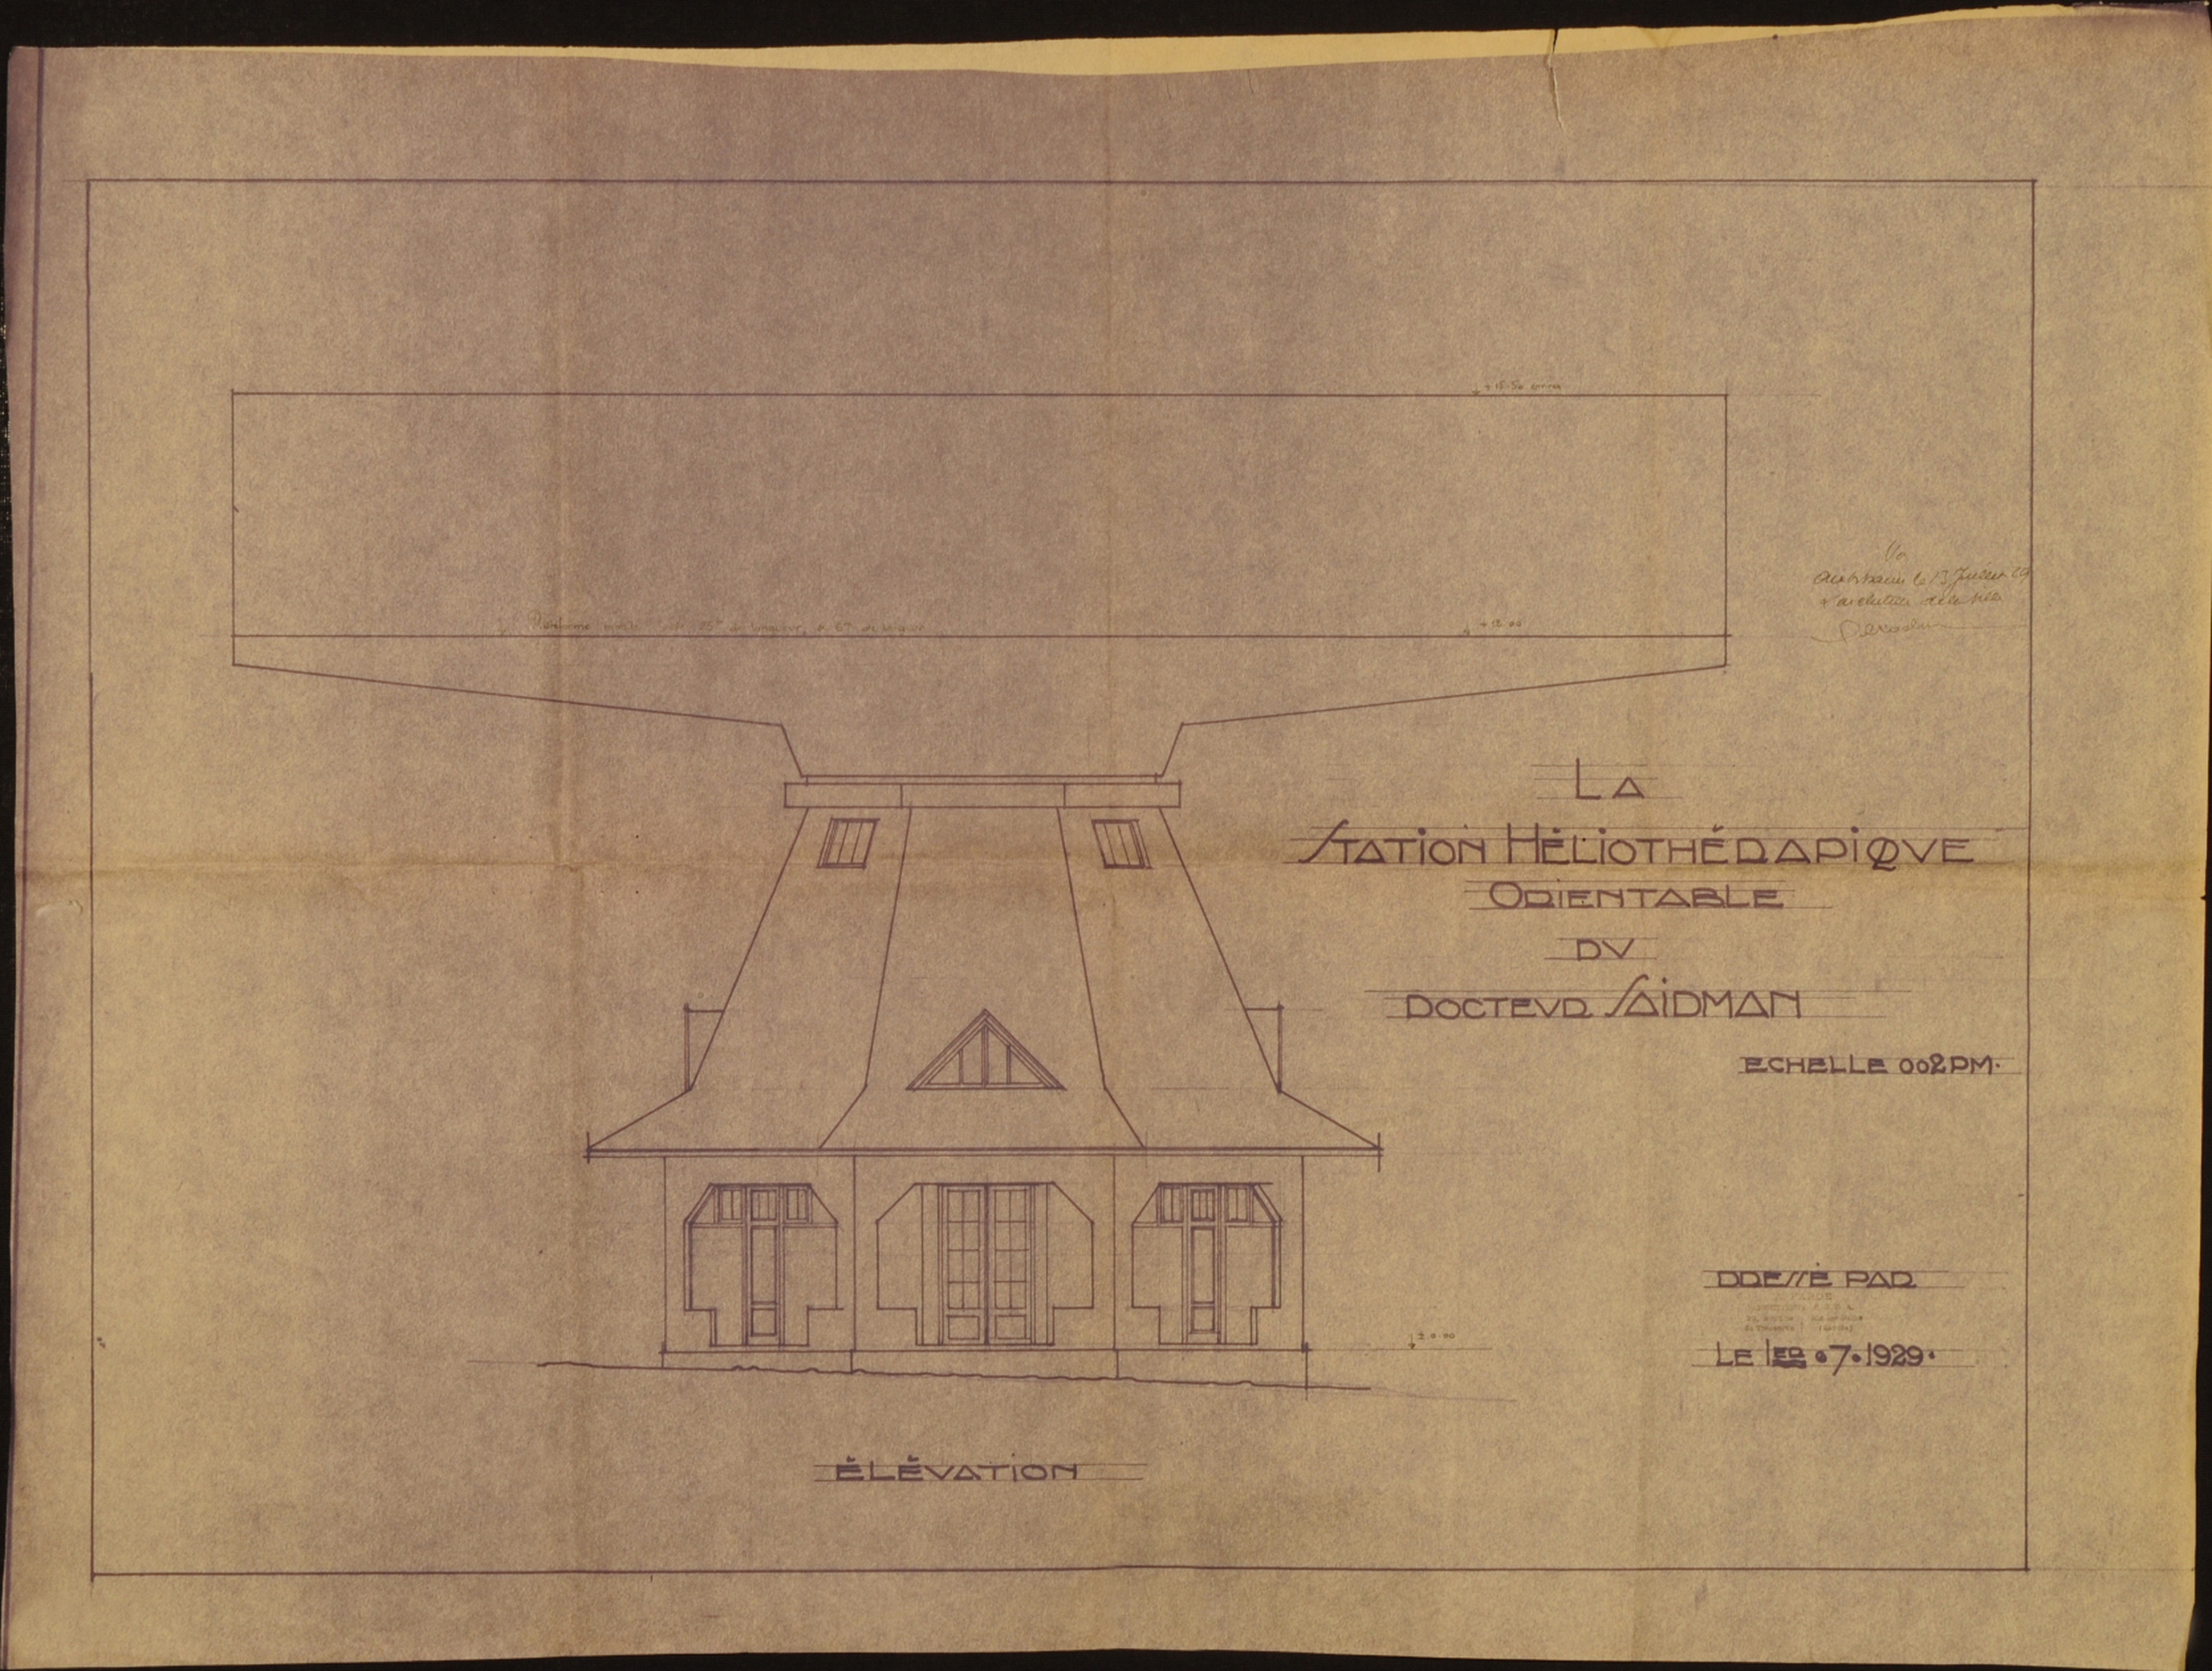 + 15.50 environ
Plateforme mobile de 25m de longueur, et 6m de largeur
+ 12.00
Vu
le 13 Juillet 29
L'architecte de la ville
LA
STATION HÉLIOTHÉRAPIQVE
ORIENTABLE
DV
DOCTEVR SAIDMAN
ECHELLE 002PM.
DRESSÉ PAR
± 0.00
LE 1ER.7.1929.
ÉLÉVATION